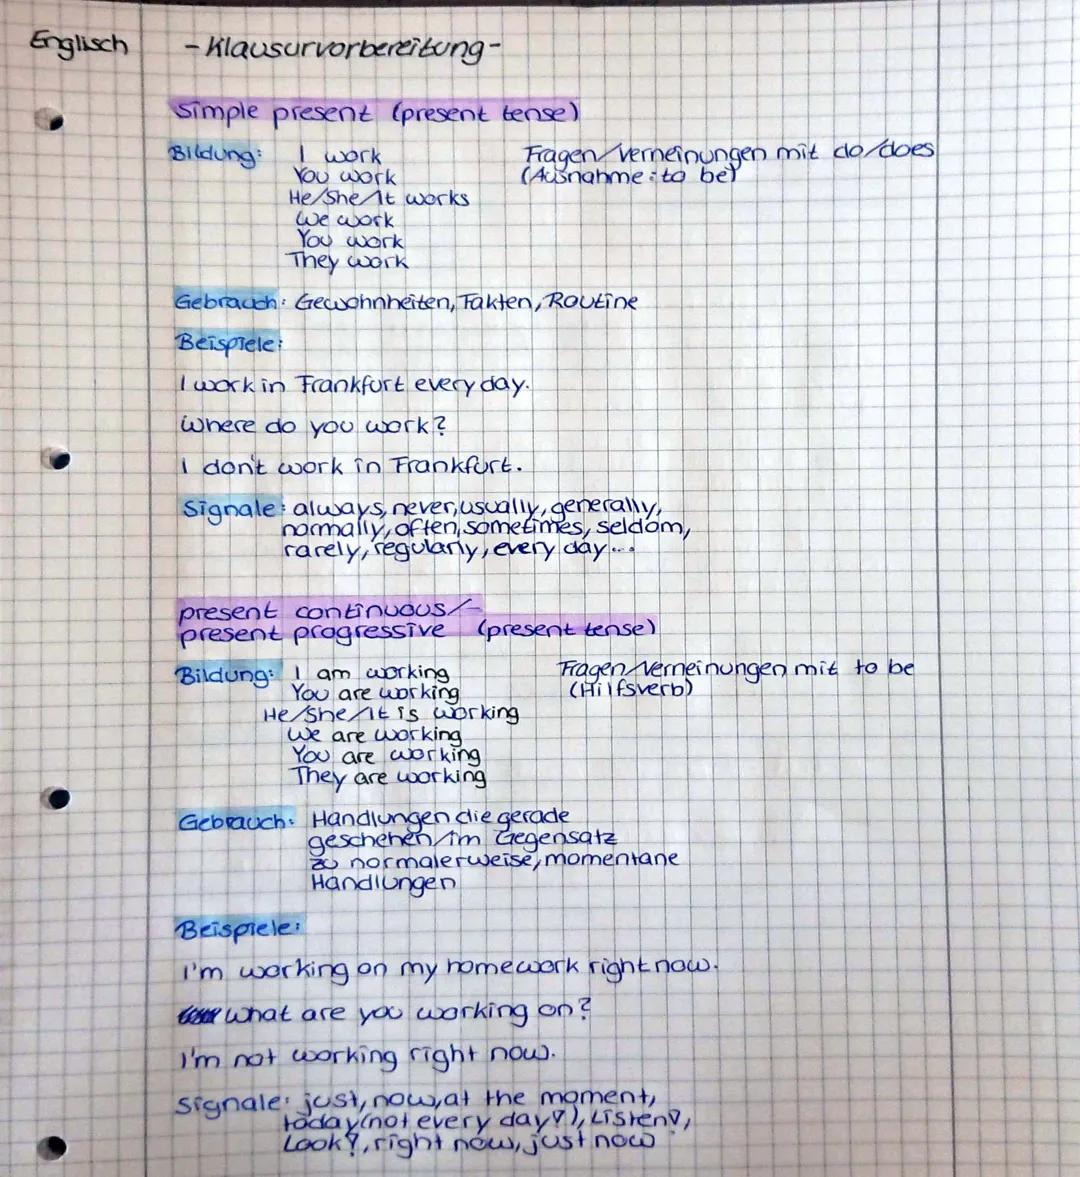 Englisch
- Klausurvorbereitung -
simple present (present tense)
Bildung: I work
You work
He/She/It works
We work
You work
They work
Fragen/Verneinungen mit do/does
(Ausnahme: to be)
Gebrauch: Gewohnheiten, Fakten, Routine
Beispiele:
I work in Frankfurt every day.
Where do you work?
I don't work in Frankfurt.
Signale: always, never, usually, generally,
normally, often, sometimes, seldom,
rarely, regularly, every day...
present continuous/-
present progressive (present tense)
Bildung: I am working
You are working
He/She/It is working
We are working
You are working
They are working
Fragen/Verneinungen mit to be
(Hilfsverb)
Gebrauch: Handlungen die gerade
geschehen/im Gegensatz
zu normalerweise, momentane
Handlungen
Beispiele:
I'm working on my homework right now.
What are you working on?
I'm not working right now.
Signale: just, now, at the moment,
today (not every day!), Listen!,
Look!, right now, just now